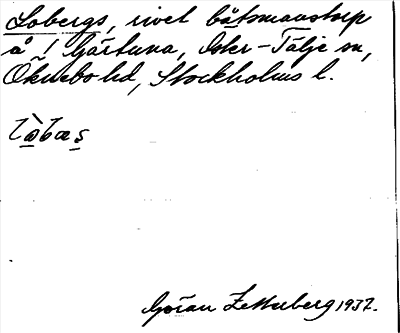 Lobergs, rivet båtsmanstorp
å ! Gärtuna, Öster-Tälje sn,
Öknebo hd, Stockholms l.
Göran Zetterberg 1937.